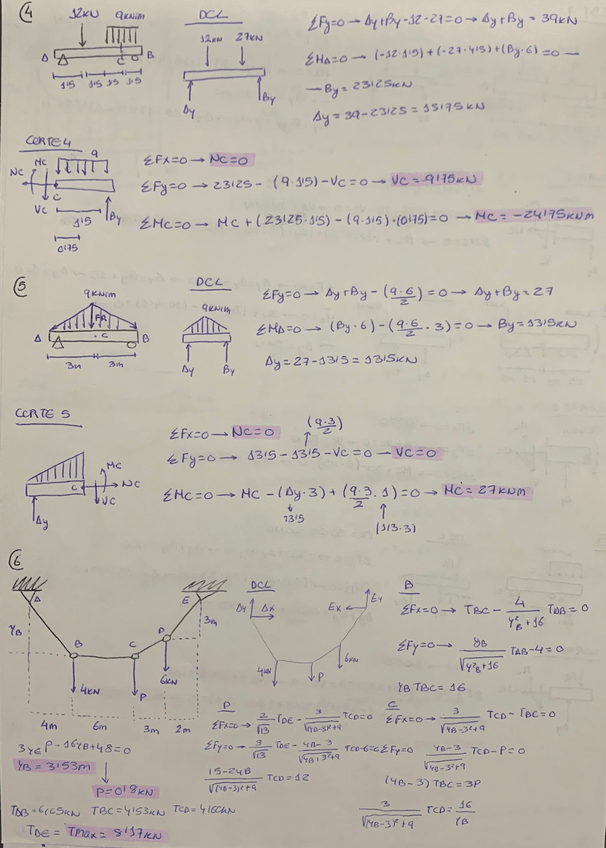 4
12KN
9KN/m
A
B
C
1'5
1'5
1'5
1'5
DCL
12KN
27KN
Ay
By
ΣFy=0 → Ay+By-12-27=0 → Ay+By=39KN
ΣMA=0 → (-12·1'5)+(-27·4'5)+(By·6)=0 —
— By=23'25KN
Ay=39-23'25=15'75KN
CORTE 4
MC
9
NC
C
VC
By
1'5
0'75
ΣFx=0 → NC=0
ΣFy=0 → 23'25-(9·1'5)-VC=0 → VC=9'75KN
ΣMC=0 → MC+(23'25·1'5)-(9·1'5)·(0'75)=0 → MC=-24'75KNm
5
9KN/m
FR
A
C
B
3m
3m
DCL
9KN/m
Ay
By
ΣFy=0 → Ay+By-(9·6/2)=0 → Ay+By=27
ΣMA=0 → (By·6)-(9·6/2·3)=0 → By=13'5KN
Ay=27-13'5=13'5KN
CORTE 5
MC
C
NC
VC
Ay
(9·3/2)
ΣFx=0 → NC=0
ΣFy=0 → 13'5-13'5-VC=0 → VC=0
ΣMC=0 → MC-(Ay·3)+(9·3/2·1)=0 → MC=27KNm
13'5
(1/3·3)
6
A
E
YB
B
C
D
3m
4KN
P
6KN
4m
6m
3m
2m
DCL
Ay
Ax
Ex
Ey
4KN
P
6KN
B
ΣFx=0 → TBC-4/√(Y²B+16) TAB=0
ΣFy=0 → YB/√(Y²B+16) TAB-4=0
YB TBC=16
D
ΣFx=0 → 2/√13 TDE-3/√((YB-3)²+9) TCD=0
ΣFy=0 → 3/√13 TDE-YB-3/√((YB-3)²+9) TCD-6=0
15-2YB/√((YB-3)²+9) TCD=12
C
ΣFx=0 → 3/√((YB-3)²+9) TCD-TBC=0
ΣFy=0 YB-3/√((YB-3)²+9) TCD-P=0
(YB-3) TBC=3P
3/√((YB-3)²+9) TCD=16/YB
YB=3'53m
P=0'8KN
TBC=4'53KN
TDE=Tmax=8'17KN